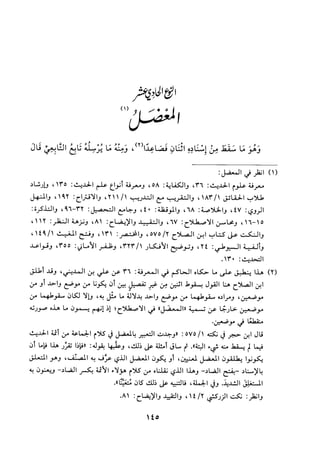 النوع الحادي عشر
المعضل (١)
وَهُوَ مَا سَقَطَ مِنْ إِسْنَادِهِ اثْنَانِ فَصَاعِدًا(٢)، وَمِنْهُ مَا يُرْسِلُهُ تَابِعُ التَّابِعِيِّ قَالَ
(١) انظر في المعضل:
معرفة علوم الحديث: ٣٦، والكفاية: ٥٨، ومعرفة أنواع علم الحديث: ١٣٥، وإرشاد
طلاب الحقائق ١/١٨٣، والتقريب مع التدريب ١/٢١١، والاقتراح: ١٩٢، والمنهل
الروي: ٤٧، والخلاصة: ٦٨، والموقظة: ٤٠، وجامع التحصيل: ٣٢-٩٦، والتذكرة:
١٥-١٦، ومحاسن الاصطلاح: ٦٧، والتقييد والإيضاح: ٨١، ونزهة النظر: ١١٢،
والنكت على كتاب ابن الصلاح ٢/٥٧٥، والمختصر: ١٣١، وفتح المغيث ١/١٤٩،
وألفية السيوطي: ٢٤، وتوضيح الأفكار ١/٣٢٣، وظفر الأماني: ٣٥٥، وقواعد
التحديث: ١٣٠.
(٢) هذا ينطبق على ما حكاه الحاكم في المعرفة: ٣٦ عن علي بن المديني، وقد أطلق
ابن الصلاح هذا القول بسقوط اثنين من غير تفصيل بين أن يكونا من موضع واحد أو من
موضعين، ومراده سقوطهما من موضع واحد بدلالة ما مثل به، وإلا لكان سقوطهما من
موضعين خارجًا عن تسمية «المعضل في الاصطلاح» إذ إنهم يسمون ما هذه صورته
منقطعًا في موضعين.
قال ابن حجر في نكته ١/٥٧٥: «وجدت التعبير بالمعضل في كلام الجماعة من أئمة الحديث
فيما لم يسقط منه شيء البتة». ثم ساق أمثلة على ذلك، وعقبها بقوله: «فإذا تقرر هذا فإما أن
يكونوا يطلقون المعضل لمعنيين، أو يكون المعضل الذي عرّف به المصنف، وهو المتعلق
بالإسناد -بفتح الضاد- وهذا الذي نقلناه من كلام هؤلاء الأئمة بكسر الضاد- ويعنون به
المستغلق الشديد. وفي الجملة، فالتنبيه على ذلك كان متعينًا».
وانظر: نكت الزركشي ٢/١٤، والتقييد والإيضاح: ٨١.
١٤٥